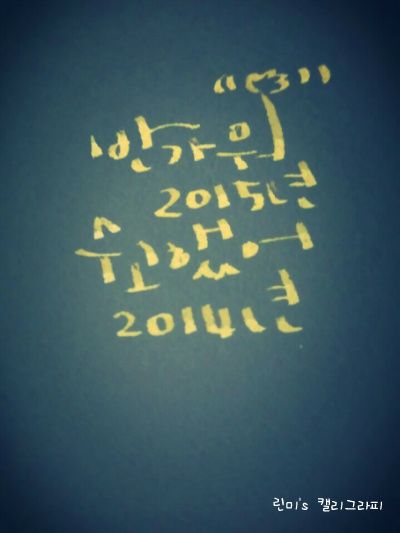 반가워
2015년
수고했어
2014년
린미's 캘리그라피